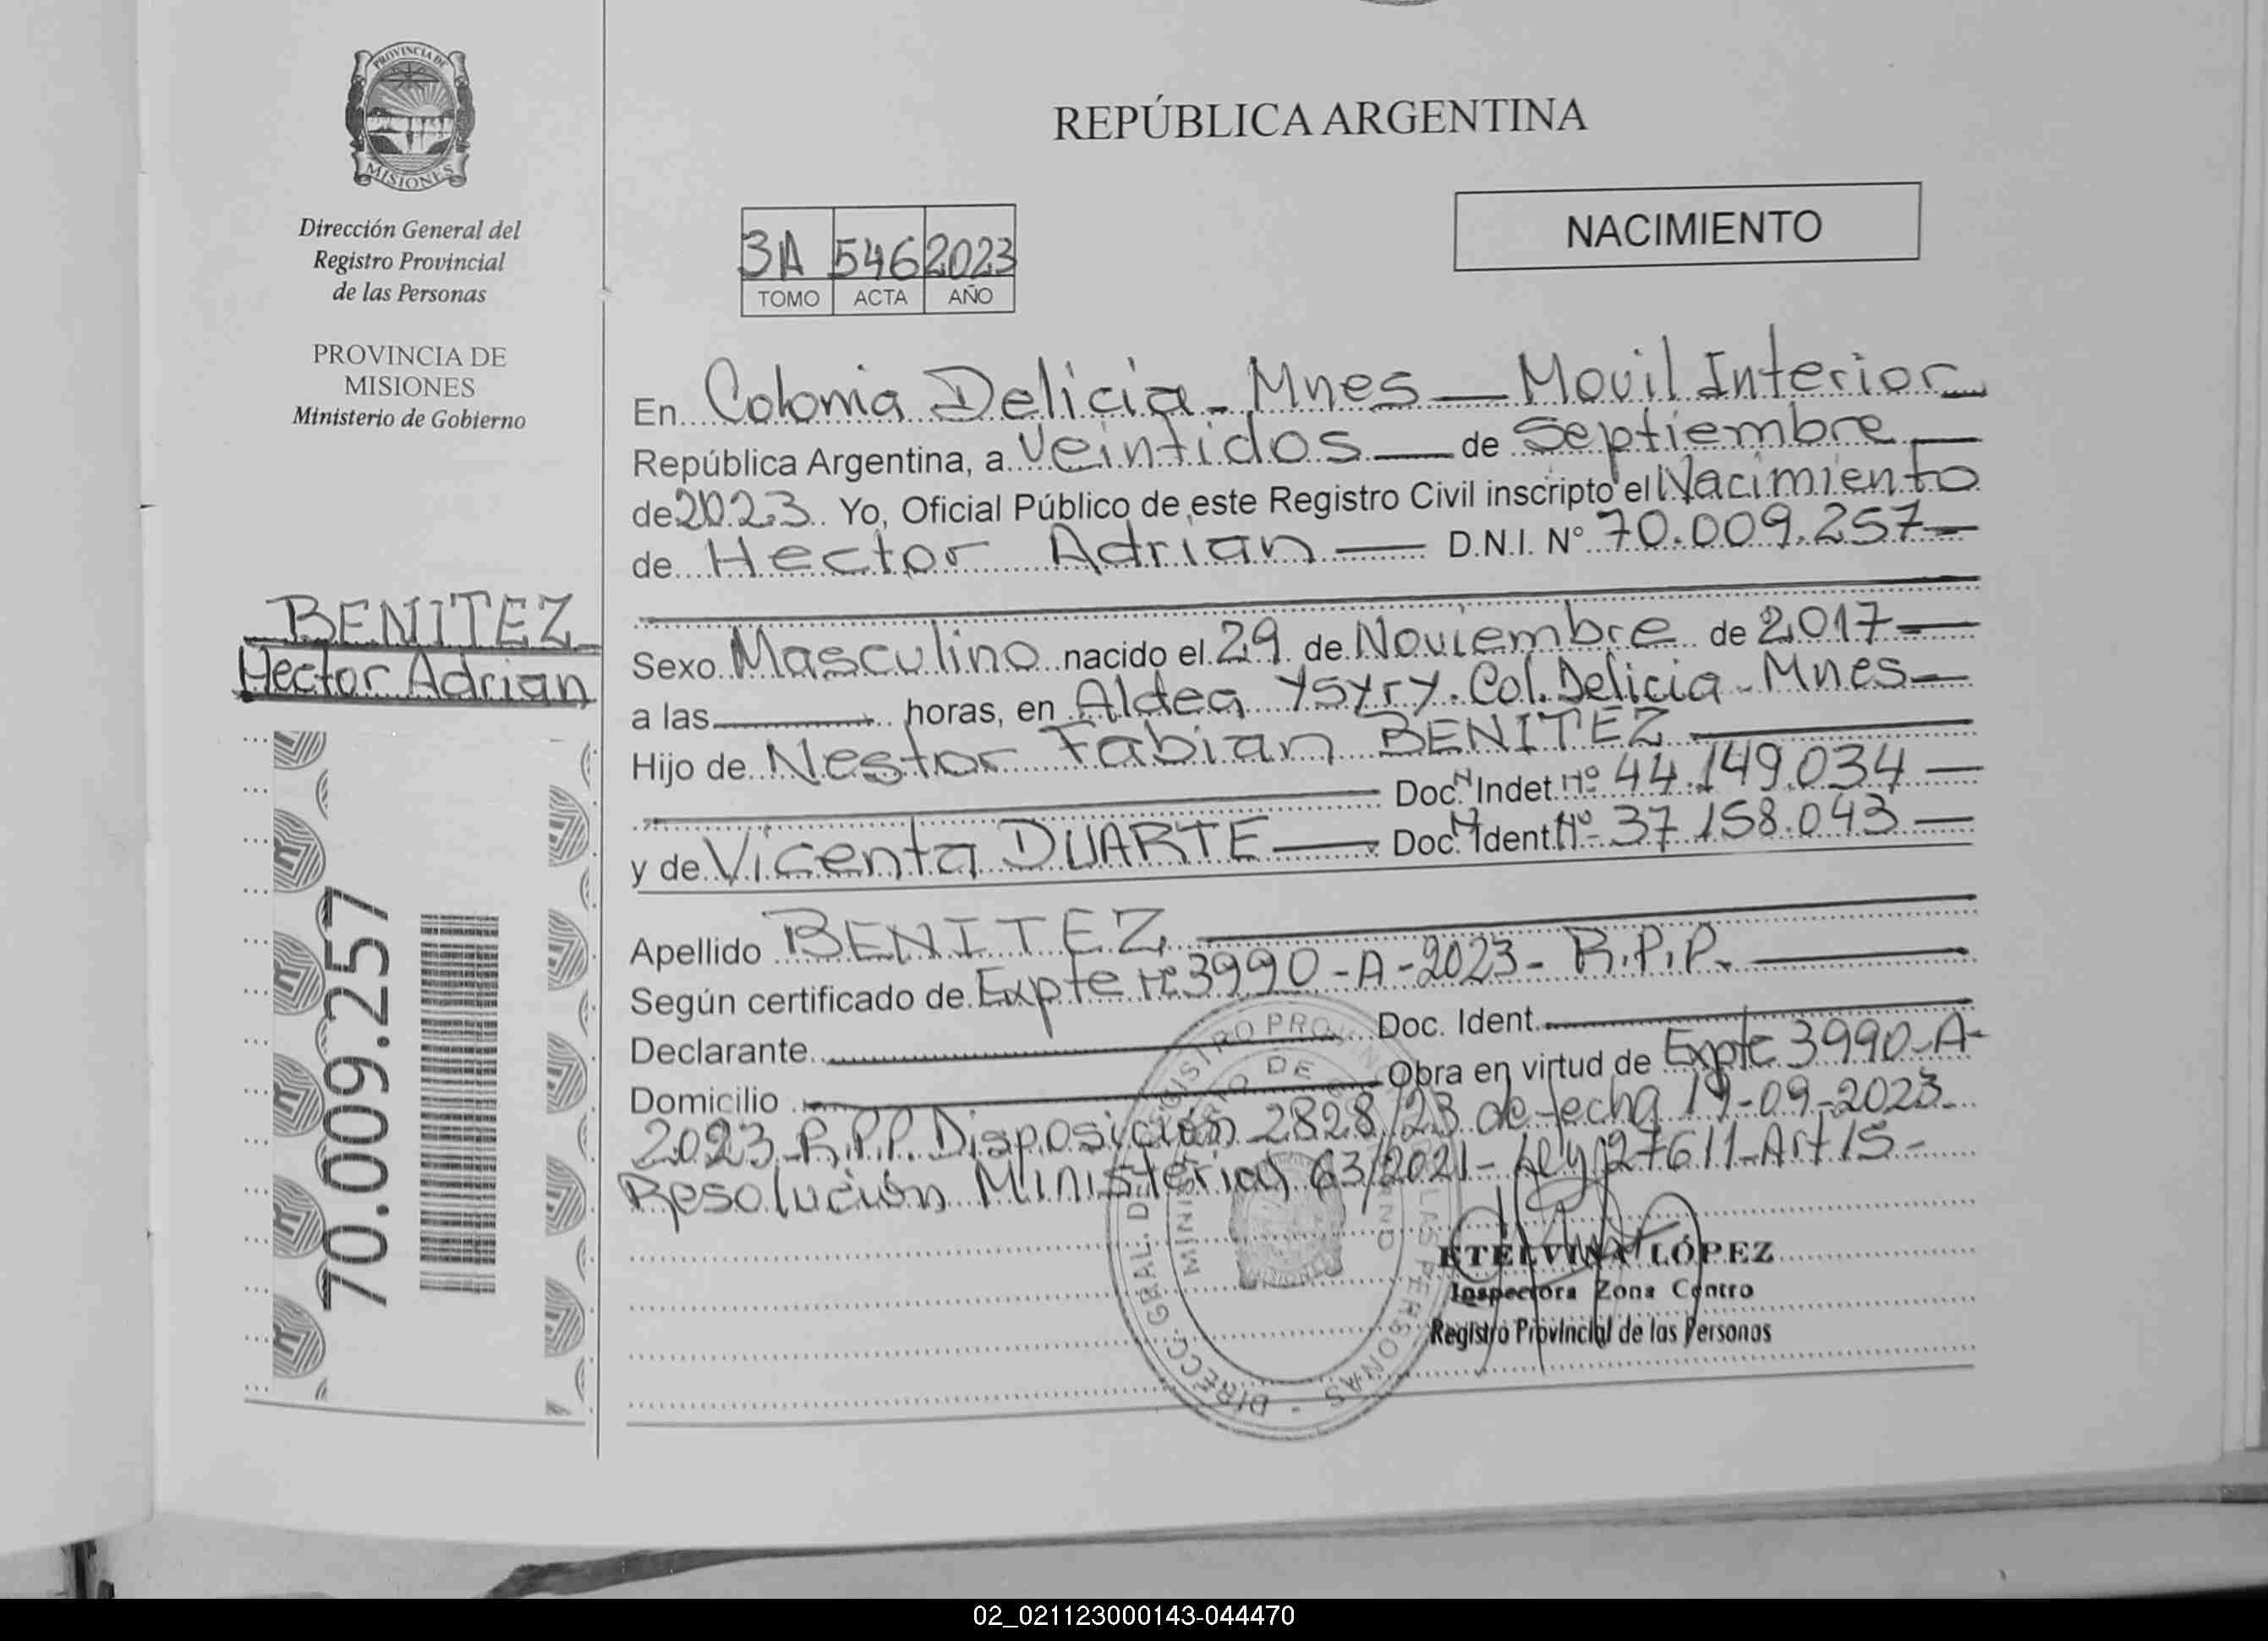 PROVINCIA DE
MISIONES
Dirección General del
Registro Provincial
de las Personas
PROVINCIA DE
MISIONES
Ministerio de Gobierno
BENITEZ
Hector Adrian
70.009.257
REPÚBLICA ARGENTINA
NACIMIENTO
3A 546 2023
TOMO ACTA AÑO
En Colonia Delicia - Mnes — Movil Interior
República Argentina, a Veintidos — de Septiembre —
de 2023. Yo, Oficial Público de este Registro Civil inscripto el Nacimiento
de Hector Adrian — D.N.I. N° 70.009.257 —
Sexo Masculino nacido el 29 de Noviembre de 2017 —
a las — horas, en Aldea Ysyry. Col. Delicia - Mnes —
Hijo de Nestor Fabian BENITEZ —
Doc. N Indet. Nº 44.149.034 —
y de Vicenta DUARTE — Doc. N Ident. Nº 37.158.043 —
Apellido BENITEZ —
Según certificado de Expte Nº 3990-A-2023- R.P.P. —
Declarante — Doc. Ident. —
Domicilio — Obra en virtud de Expte 3990-A-
2023 R.P.P. Disposición 2828/23 de fecha 19-09-2023
Resolución Ministerial 63/2021- Ley 27611-Art 15 -
ETELVINA LÓPEZ
Inspectora Zona Centro
Registro Provincial de las Personas
DIRECC. GRAL. DEL REGISTRO PROVINCIAL DE LAS PERSONAS
02_021123000143-044470